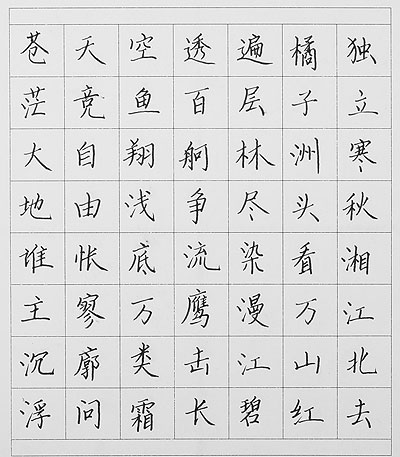 独立寒秋湘江北去
橘子洲头看万山红
遍层林尽染漫江碧
透百舸争流鹰击长
空鱼翔浅底万类霜
天竞自由怅寥廓问
苍茫大地谁主沉浮